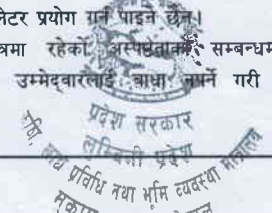 लेटर प्रयोग गर्न पाइने छैन।
त्रमा रहेको अस्पष्टताको सम्बन्धम
उम्मेदवारलाई बाधा नपर्ने गरी
प्रदेश सरकार
लुम्बिनी प्रदेश
कृषि, खाद्य प्रविधि तथा भूमि व्यवस्था मन्त्रालय